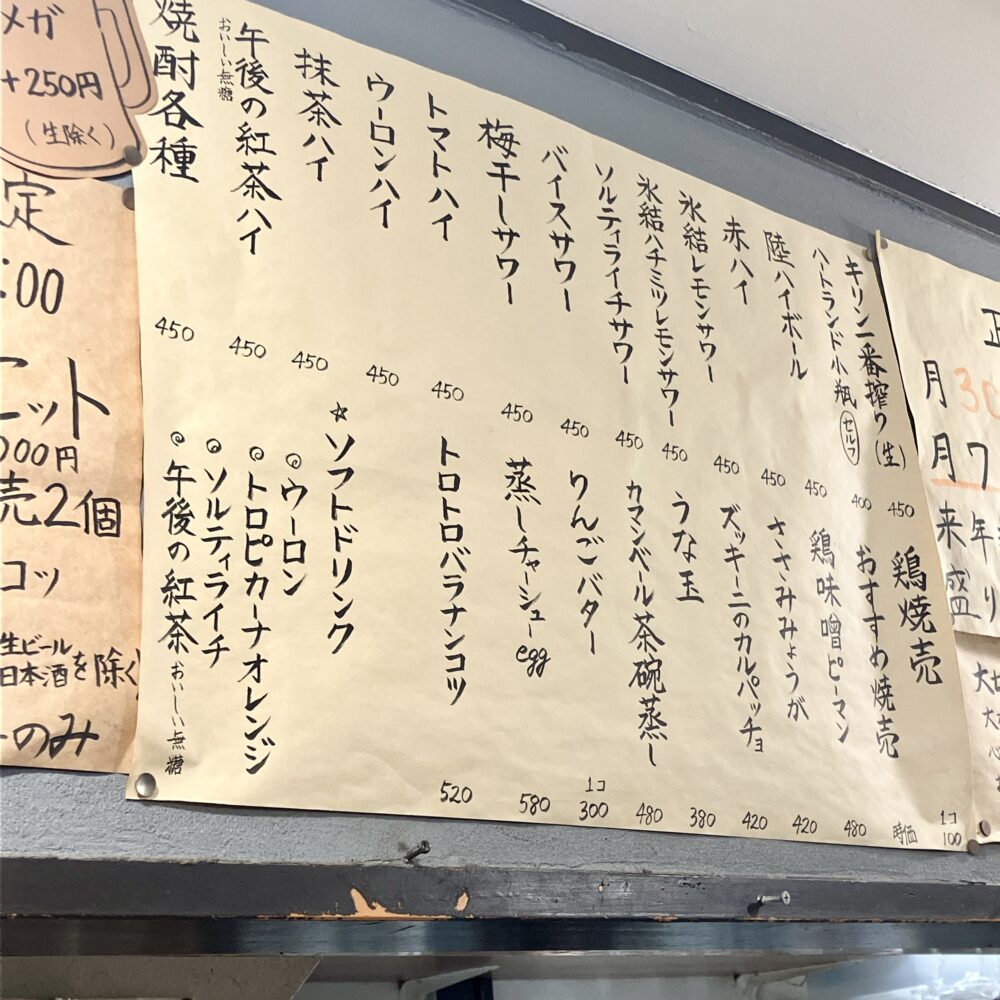 キリン一番搾り(生) 450
ハートランド小瓶 セルフ 400
陸ハイボール 450
赤ハイ 450
氷結レモンサワー 450
氷結ハチミツレモンサワー 450
ソルティライチサワー 450
バイスサワー 450
梅干しサワー 450
トマトハイ 450
ウーロンハイ 450
抹茶ハイ 450
午後の紅茶ハイ おいしい無糖 450
焼酎各種 450
鶏焼売 1コ 100
おすすめ焼売 時価
鶏味噌ピーマン 480
ささみみょうが 420
ズッキーニのカルパッチョ 420
うな玉 380
カマンベール茶碗蒸し 480
りんごバター 1コ 300
蒸しチャーシューegg 580
トロトロバラナンコツ 520
☆ソフトドリンク
ウーロン
トロピカーナオレンジ
ソルティライチ
午後の紅茶 おいしい無糖
メガ
+250円
(生除く)
定
:00
ニット
000円
売2個
コッ
生ビール
日本酒を除く
のみ
月30
月7
来年
盛り